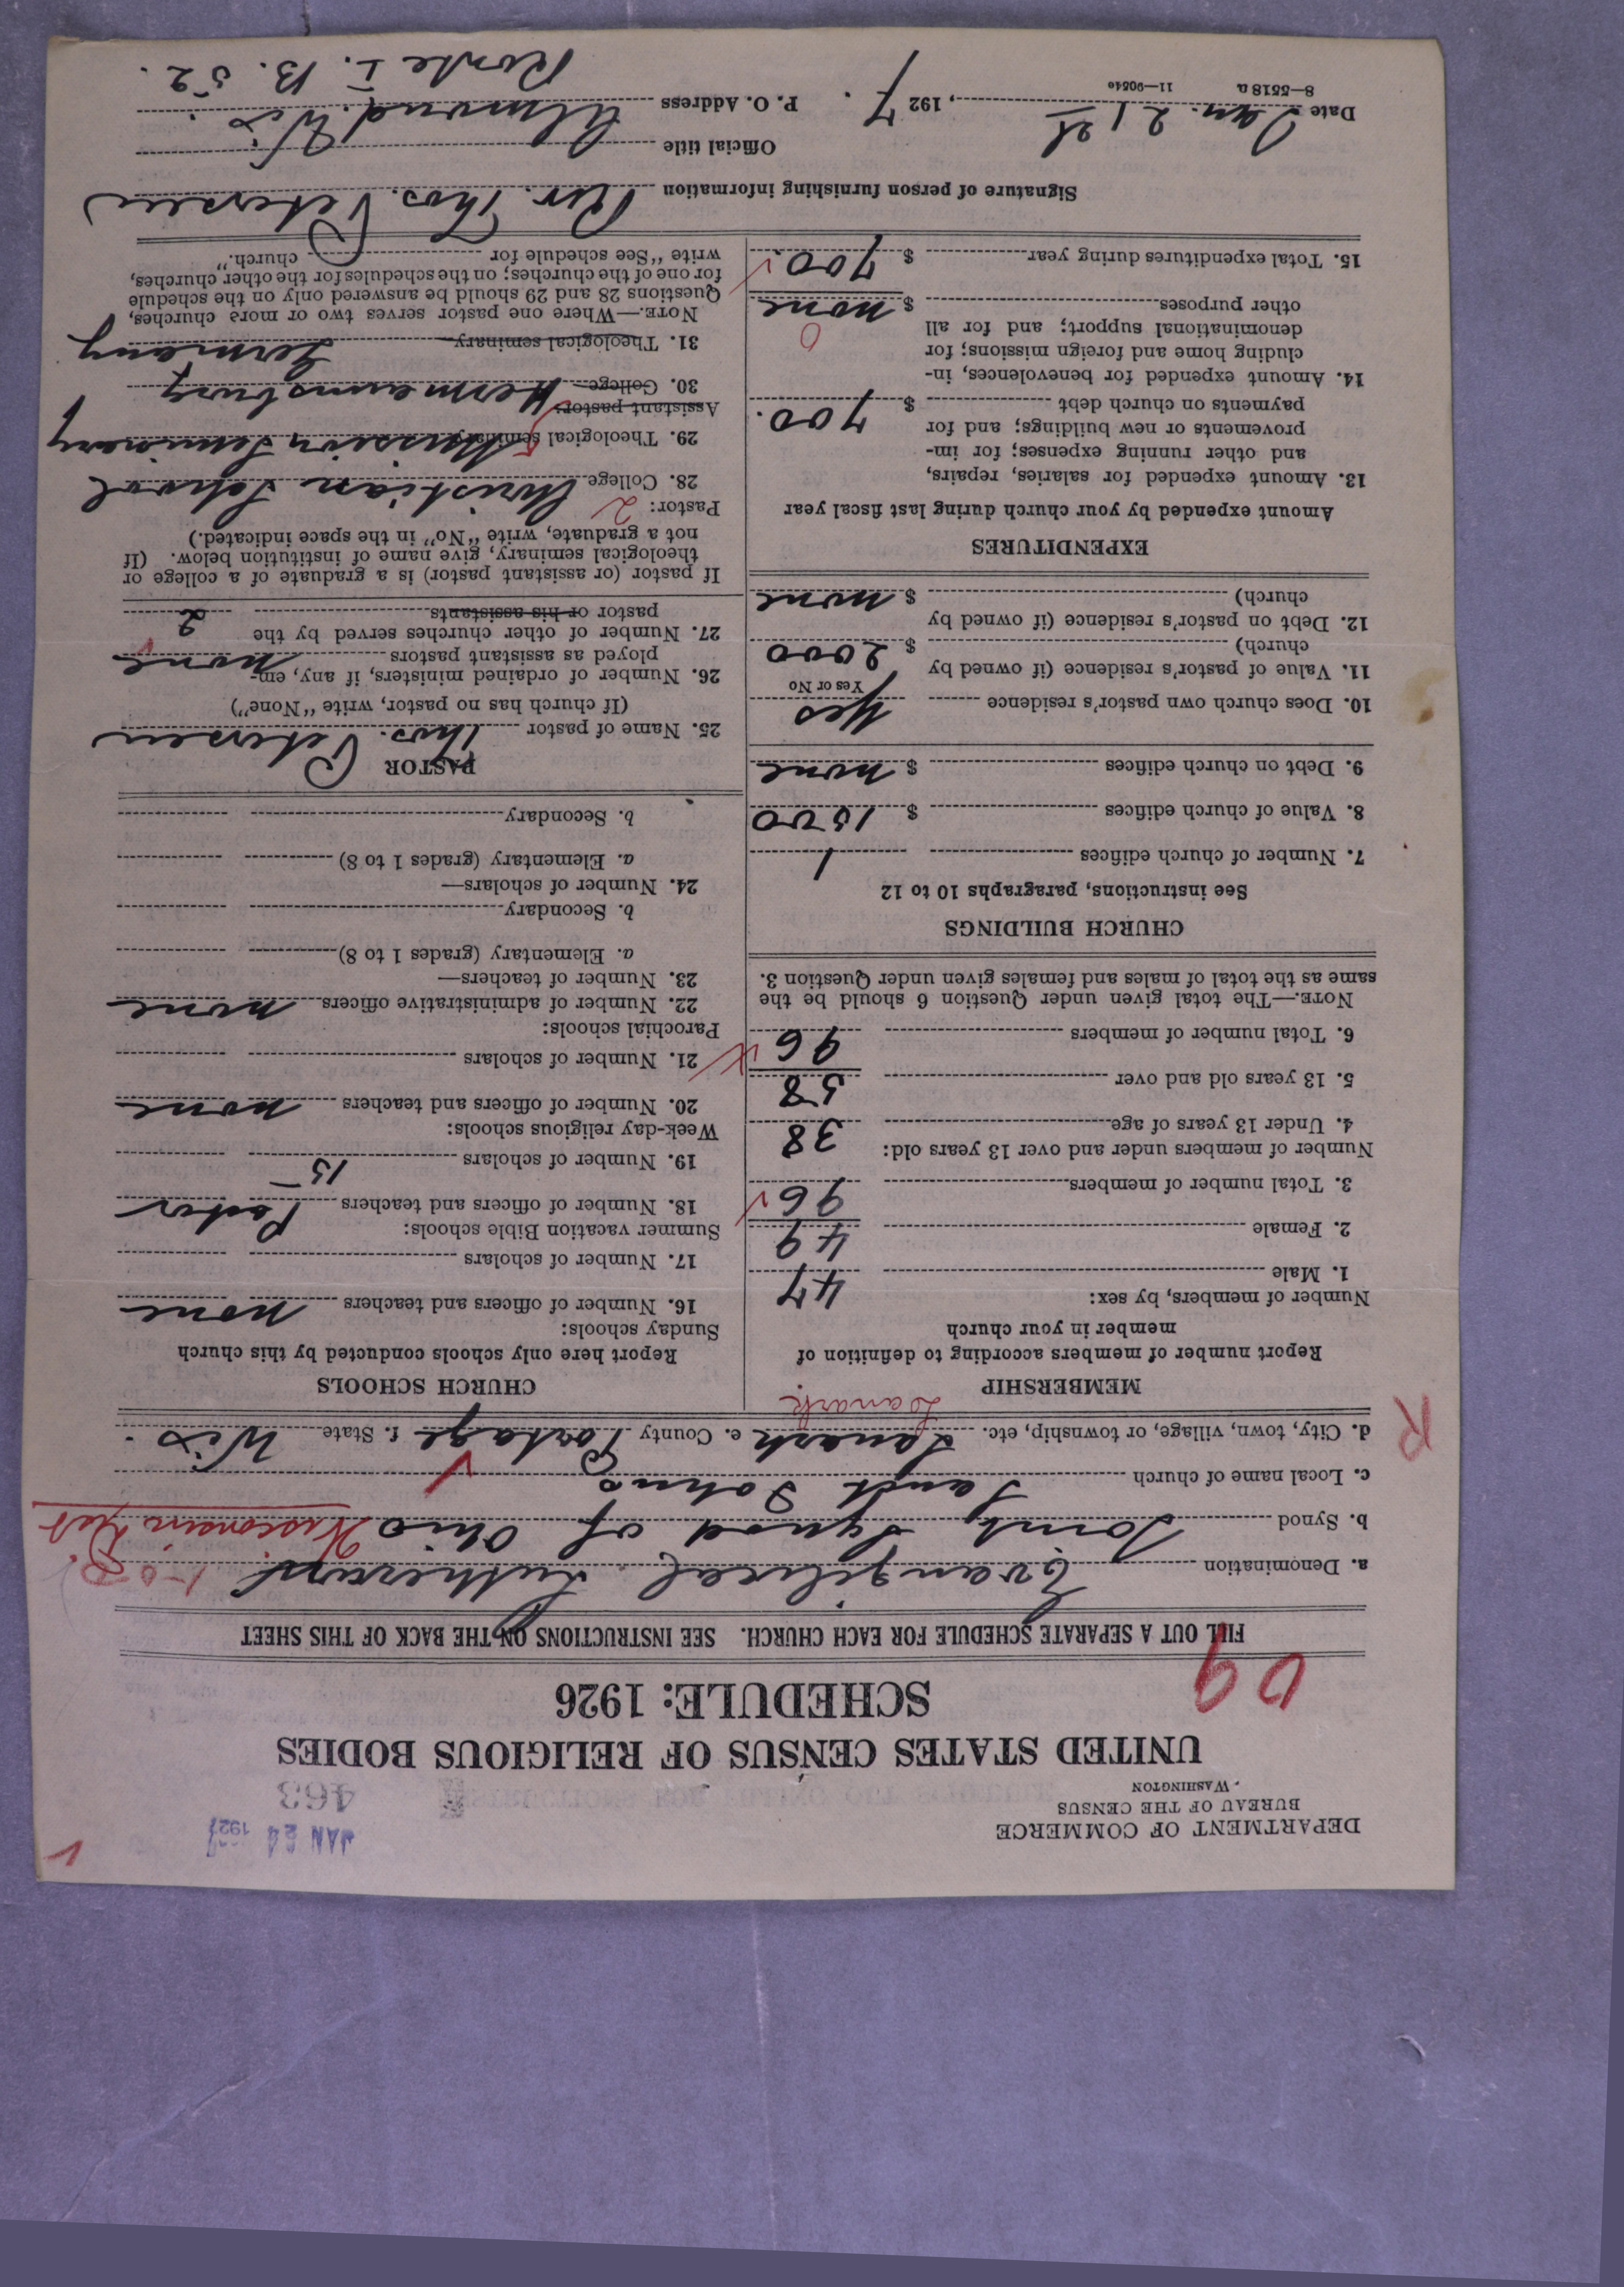 DEPARTMENT OF COMMERCE
BUREAU OF THE CENSUS
WASHINGTON
JAN 24 1927
463
UNITED STATES CENSUS OF RELIGIOUS BODIES
SCHEDULE: 1926
FILL OUT A SEPARATE SCHEDULE FOR EACH CHURCH. SEE INSTRUCTIONS ON THE BACK OF THIS SHEET
a. Denomination Evangelical Lutheran
b. Synod Joint Synod of Ohio Wisconsin Dist
c. Local name of church Sanct Johns
d. City, town, village, or township, etc. Lanark e. County Portage f. State Wis.
Lanark
R
MEMBERSHIP
Report number of members according to definition of
member in your church
Number of members, by sex:
1. Male 47
2. Female 49
3. Total number of members 96
Number of members under and over 13 years old:
4. Under 13 years of age 38
5. 13 years old and over 58
6. Total number of members 96
NOTE.—The total given under Question 6 should be the
same as the total of males and females given under Question 3.
CHURCH BUILDINGS
See instructions, paragraphs 10 to 12
7. Number of church edifices 1
8. Value of church edifices $ 1500
9. Debt on church edifices $ none
10. Does church own pastor's residence Yes
Yes or No
11. Value of pastor's residence (if owned by
church) $ 2000
12. Debt on pastor's residence (if owned by
church) $ none
EXPENDITURES
Amount expended by your church during last fiscal year
13. Amount expended for salaries, repairs,
and other running expenses; for im-
provements or new buildings; and for
payments on church debt $ 700.
14. Amount expended for benevolences, in-
cluding home and foreign missions; for
denominational support; and for all
other purposes $ none
0
15. Total expenditures during year $ 700.
CHURCH SCHOOLS
Report here only schools conducted by this church
Sunday schools:
16. Number of officers and teachers none
17. Number of scholars
Summer vacation Bible schools:
18. Number of officers and teachers Pastor
19. Number of scholars 15
Week-day religious schools:
20. Number of officers and teachers none
21. Number of scholars
Parochial schools:
22. Number of administrative officers none
23. Number of teachers—
a. Elementary (grades 1 to 8)
b. Secondary
24. Number of scholars—
a. Elementary (grades 1 to 8)
b. Secondary
PASTOR
25. Name of pastor Thos. Petersen
(If church has no pastor, write "None")
26. Number of ordained ministers, if any, em-
ployed as assistant pastors none
27. Number of other churches served by the
pastor or his assistants 2
If pastor (or assistant pastor) is a graduate of a college or
theological seminary, give name of institution below. (If
not a graduate, write "No" in the space indicated.)
Pastor: 2
28. College Christian School
29. Theological seminary Mission Seminary
Assistant pastor:
30. College Hermannsburg
31. Theological seminary Germany
NOTE.—Where one pastor serves two or more churches,
Questions 28 and 29 should be answered only on the schedule
for one of the churches; on the schedules for the other churches,
write "See schedule for church."
Signature of person furnishing information Rev. Thos. Petersen
Official title
Date Jan. 21st, 1927. P. O. Address Almond. Wis.
Route I. B. 52.
8—5518 a 11—9054c